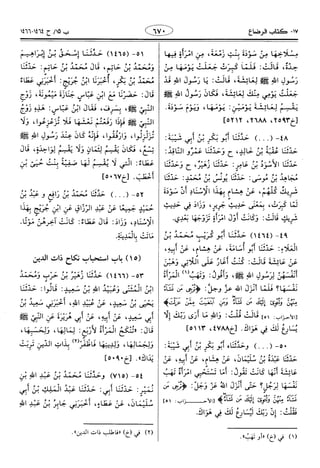 ٠٧- كتاب الرضاع
٦٧٠
ب ٥/ ح ١٤٦٤-١٤٦٦
مِسْلَاخِهَا مِنْ سَوْدَةَ بِنْتِ زَمْعَةَ، مِنِ امْرَأَةٍ فِيهَا
حِدَّةٌ، قَالَتْ: فَلَمَّا كَبِرَتْ جَعَلَتْ يَوْمَهَا مِنْ
رَسُولِ اللهِ ﷺ لِعَائِشَةَ، قَالَتْ: يَا رَسُولَ اللهِ قَدْ
جَعَلْتُ يَوْمِي مِنْكَ لِعَائِشَةَ، فَكَانَ رَسُولُ اللهِ ﷺ
يَقْسِمُ لِعَائِشَةَ يَوْمَيْنِ: يَوْمَهَا، وَيَوْمَ سَوْدَةَ.
[خ٢٥٩٣، ٢٦٨٨، ٥٢١٢]
٤٨- (...) حَدَّثَنَا أَبُو بَكْرِ بْنُ أَبِي شَيْبَةَ:
حَدَّثَنَا عُقْبَةُ بْنُ خَالِدٍ، ح وَحَدَّثَنَا عَمْرٌو النَّاقِدُ:
حَدَّثَنَا الْأَسْوَدُ بْنُ عَامِرٍ: حَدَّثَنَا زُهَيْرٌ، ح وَحَدَّثَنَا
مُجَاهِدُ بْنُ مُوسَى: حَدَّثَنَا يُونُسُ بْنُ مُحَمَّدٍ: حَدَّثَنَا
شَرِيكٌ كُلُّهُمْ، عَنْ هِشَامٍ بِهَذَا الْإِسْنَادِ أَنَّ سَوْدَةَ
لَمَّا كَبِرَتْ، بِمَعْنَى حَدِيثِ جَرِيرٍ، وَزَادَ فِي حَدِيثِ
شَرِيكٍ: قَالَتْ: وَكَانَتْ أَوَّلَ امْرَأَةٍ تَزَوَّجَهَا بَعْدِي.
٤٩- (١٤٦٤) حَدَّثَنَا أَبُو كُرَيْبٍ مُحَمَّدُ بْنُ
الْعَلَاءِ: حَدَّثَنَا أَبُو أُسَامَةَ، عَنْ هِشَامٍ، عَنْ أَبِيهِ،
عَنْ عَائِشَةَ قَالَتْ: كُنْتُ أَغَارُ عَلَى اللَّاتِي وَهَبْنَ
أَنْفُسَهُنَّ لِرَسُولِ اللهِ ﷺ، وَأَقُولُ: وَتَهَبُ(١) الْمَرْأَةُ
نَفْسَهَا؟ فَلَمَّا أَنْزَلَ اللهُ عَزَّ وَجَلَّ: ﴿تُرْجِى مَن تَشَآءُ
مِنْهُنَّ وَتُـْٔوِىٓ إِلَيْكَ مَن تَشَآءُ وَمَنِ ٱبْتَغَيْتَ مِمَّنْ عَزَلْتَ﴾
[الأحزاب: ٥١] قَالَتْ: قُلْتُ: وَاللهِ مَا أَرَى رَبَّكَ إِلَّا
يُسَارِعُ لَكَ فِي هَوَاكَ. [خ٤٧٨٨، ٥١١٣]
٥٠- (...) وحَدَّثَنَاه أَبُو بَكْرِ بْنُ أَبِي شَيْبَةَ:
حَدَّثَنَا عَبْدَةُ بْنُ سُلَيْمَانَ، عَنْ هِشَامٍ، عَنْ أَبِيهِ، عَنْ
عَائِشَةَ أَنَّهَا كَانَتْ تَقُولُ: أَمَا تَسْتَحْيِي امْرَأَةٌ تَهَبُ
نَفْسَهَا لِرَجُلٍ؟ حَتَّى أَنْزَلَ اللهُ عَزَّ وَجَلَّ: ﴿تُرْجِى مَن
تَشَآءُ مِنْهُنَّ وَتُـْٔوِىٓ إِلَيْكَ مَن تَشَآءُ﴾ [الأحزاب: ٥١]
فَقُلْتُ: إِنَّ رَبَّكَ لَيُسَارِعُ لَكَ فِي هَوَاكَ.
٥١- (١٤٦٥) حَدَّثَنَا إِسْحَقُ بْنُ إِبْرَاهِيمَ
وَمُحَمَّدُ بْنُ حَاتِمٍ، قَالَ مُحَمَّدُ بْنُ حَاتِمٍ: حَدَّثَنَا
مُحَمَّدُ بْنُ بَكْرٍ، أَخْبَرَنَا ابْنُ جُرَيْجٍ: أَخْبَرَنِي عَطَاءٌ
قَالَ: حَضَرْنَا مَعَ ابْنِ عَبَّاسٍ جَنَازَةَ مَيْمُونَةَ، زَوْجِ
النَّبِيِّ ﷺ، بِسَرِفَ، فَقَالَ ابْنُ عَبَّاسٍ: هَذِهِ زَوْجُ
النَّبِيِّ ﷺ فَإِذَا رَفَعْتُمْ نَعْشَهَا فَلَا تُزَعْزِعُوا وَلَا
تُزَلْزِلُوا، وَارْفُقُوا، فَإِنَّهُ كَانَ عِنْدَ رَسُولِ اللهِ ﷺ
تِسْعٌ، فَكَانَ يَقْسِمُ لِثَمَانٍ وَلَا يَقْسِمُ لِوَاحِدَةٍ، قَالَ
عَطَاءٌ: الَّتِي لَا يَقْسِمُ لَهَا صَفِيَّةُ بِنْتُ حُيَيِّ بْنِ
أَخْطَبَ. [خ٥٠٦٧]
٥٢- (...) حَدَّثَنَا مُحَمَّدُ بْنُ رَافِعٍ وَعَبْدُ بْنُ
حُمَيْدٍ جَمِيعًا عَنْ عَبْدِ الرَّزَّاقِ عَنِ ابْنِ جُرَيْجٍ بِهَذَا
الْإِسْنَادِ، وَزَادَ: قَالَ عَطَاءٌ: كَانَتْ آخِرَهُنَّ مَوْتًا،
مَاتَتْ بِالْمَدِينَةِ.
(١٥) باب استحباب نكاح ذات الدين
٥٣- (١٤٦٦) حَدَّثَنَا زُهَيْرُ بْنُ حَرْبٍ وَمُحَمَّدُ
ابْنُ الْمُثَنَّى وَعُبَيْدُ اللهِ بْنُ سَعِيدٍ: قَالُوا: حَدَّثَنَا
يَحْيَى بْنُ سَعِيدٍ، عَنْ عُبَيْدِ اللهِ، أَخْبَرَنِي سَعِيدُ بْنُ
أَبِي سَعِيدٍ، عَنْ أَبِيهِ، عَنْ أَبِي هُرَيْرَةَ عَنِ النَّبِيِّ ﷺ
قَالَ: «تُنْكَحُ الْمَرْأَةُ لِأَرْبَعٍ: لِمَالِهَا، وَلِحَسَبِهَا،
وَلِجَمَالِهَا، وَلِدِينِهَا فَاظْفَرْ(٢) بِذَاتِ الدِّينِ تَرِبَتْ
يَدَاكَ». [خ٥٠٩٠]
٥٤- (٧١٥) وحَدَّثَنَا مُحَمَّدُ بْنُ عَبْدِ اللهِ بْنِ
نُمَيْرٍ: حَدَّثَنَا أَبِي: حَدَّثَنَا عَبْدُ الْمَلِكِ بْنُ أَبِي
سُلَيْمَانَ، عَنْ عَطَاءٍ، أَخْبَرَنِي جَابِرُ بْنُ عَبْدِ اللهِ
(١) في (خ) «أو تهب».
(٢) في (خ) «فاطلب ذات الدين».